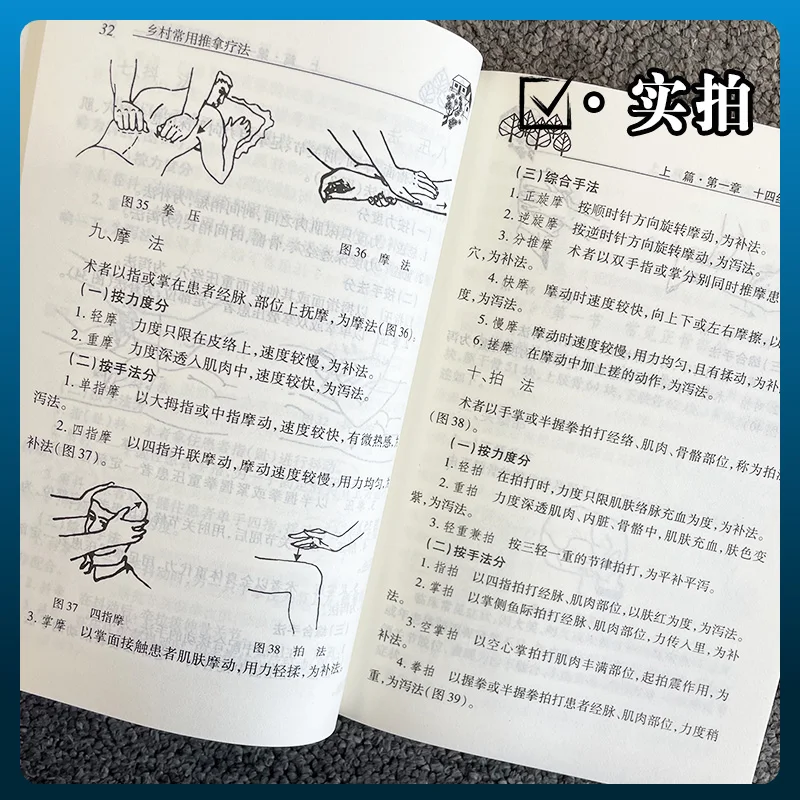 实拍
32 乡村常用推拿疗法
图35 拳 压
图36 摩 法
九、摩 法
术者以指或掌在患者经脉、部位上抚摩,为摩法(图36)。
(一)按力度分
1. 轻摩 力度只限在皮络上,速度较慢,为补法。
2. 重摩 力度深透入肌肉中,速度较快,为泻法。
(二)按手法分
1. 单指摩 以大拇指或中指摩动,速度较快,有微热感,
泻法。
2. 四指摩 以四指并联摩动,摩动速度较慢,用力均匀,
补法(图37)。
图37 四指摩
图38 拍 法
3. 掌摩 以掌面接触患者肌肤摩动,用力轻揉,为补法。
上 篇·第一章 十四经
(三)综合手法
1. 正旋摩 按顺时针方向旋转摩动,为补法。
2. 逆旋摩 按逆时针方向旋转摩动,为泻法。
3. 分推摩 术者以双手指或掌分别同时推摩患
穴,为补法。
4. 快摩 摩动时速度较快,向上下或左右摩擦,以
度,为泻法。
5. 慢摩 摩动时速度较慢,用力均匀,且有揉动,为补
6. 搓摩 在摩动中加上搓的动作,为泻法。
十、拍 法
术者以手掌或半握拳拍打经络、肌肉、骨骼部位,称为拍法
(图38)。
(一)按力度分
1. 轻拍 在拍打时,力度只限肌肤络脉充血为度,为补法。
2. 重拍 力度深透肌肉、内脏、骨骼中,肌肤充血,肤色变
紫,为泻法。
3. 轻重兼拍 按三轻一重的节律拍打,为平补平泻。
(二)按手法分
1. 指拍 以四指拍打经脉、肌肉部位,以肤红为度,为泻法。
2. 掌拍 以掌侧鱼际拍打经脉、肌肉部位,力传人里,为补
法。
3. 空掌拍 以空心掌拍打肌肉丰满部位,起拍震作用,为
补法。
4. 拳拍 以握拳或半握拳拍打患者经脉、肌肉部位,力度稍
重,为泻法(图39)。